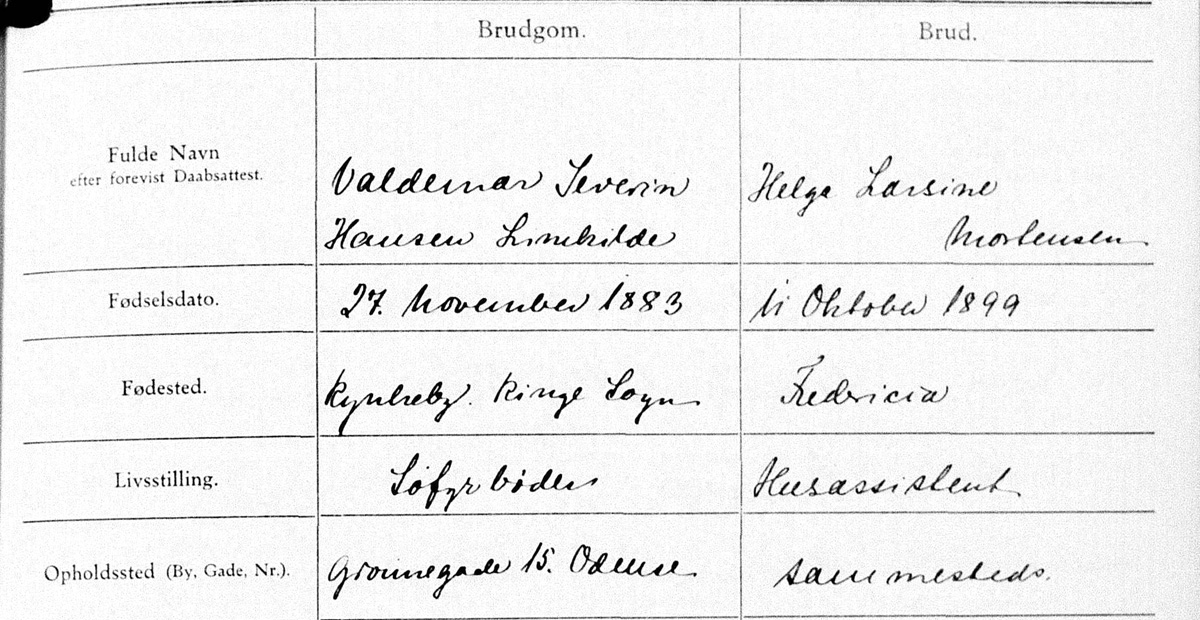 Brudgom. Brud.
Fulde Navn
efter forevist Daabsattest.
Valdemar Severin Helga Larsine
Hansen Mortensen
Fødselsdato. 27. November 1883 11 Oktober 1899
Fødested. Ringe Sogn Fredericia
Livsstilling. Søfyrbøder Husassistent
Opholdssted (By, Gade, Nr.). Grønnegade 15. Odense sammesteds.